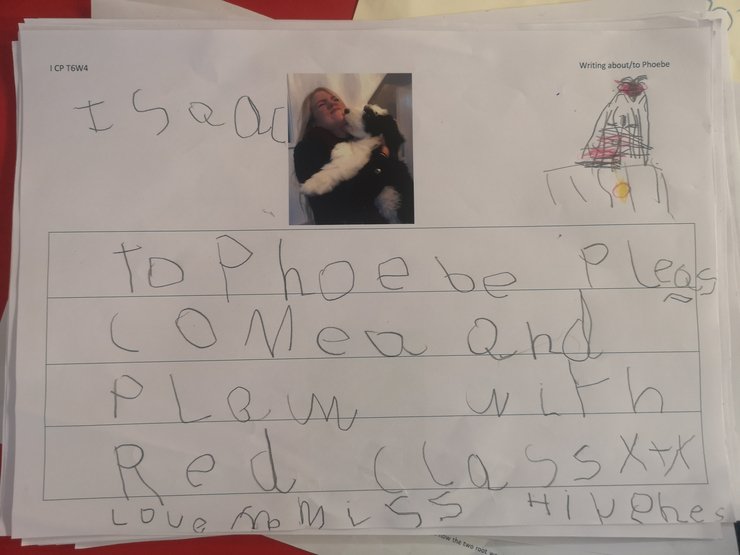 I CP T6W4
Writing about/to Phoebe
Isaac
To Phoebe Pleas
COMea and
with
Red CLass X+X
LOVe MiSS
the two root